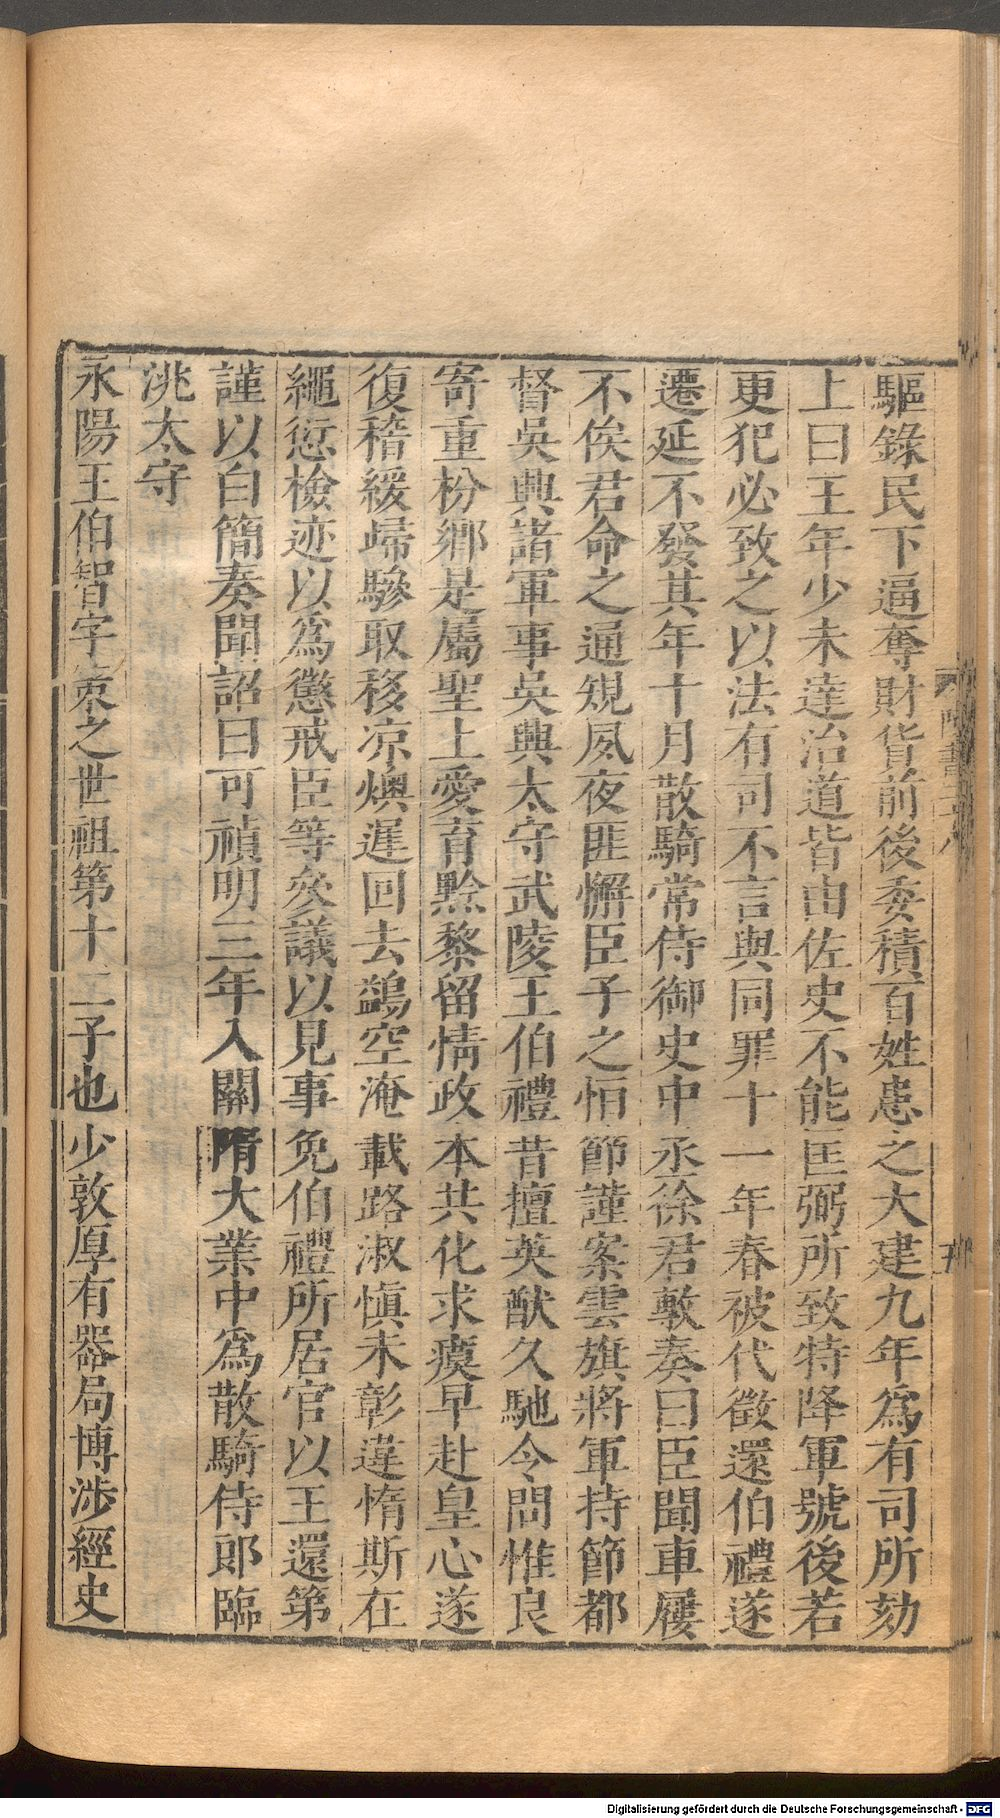 驅錄民下逼奪財貨前後委積百姓患之大建九年爲有司所劾
上曰王年少未達治道皆由佐史不能匡弼所致特降軍號後若
更犯必致之以法有司不言與同罪十一年春被代徵還伯禮遂
遷延不發其年十月散騎常侍御史中丞徐君敷奏曰臣聞車屨
不俟君命之通規夙夜匪懈臣子之恒節謹案雲旗將軍持節都
督吳興諸軍事吳興太守武陵王伯禮昔擅英猷久馳令問惟良
寄重枌鄉是屬聖上愛育黔黎留情政本共化求瘼早赴皇心遂
復稽緩歸驂取移涼燠遲回去鷁空淹載路淑愼未彰違惰斯在
繩愆檢迹以爲懲戒臣等叅議以見事免伯禮所居官以王還第
謹以白簡奏聞詔曰可禎明三年入關隋大業中爲散騎侍郎臨
洮太守
永陽王伯智字策之世祖第十二子也少敦厚有器局博涉經史
陳書二十八
Digitalisierung gefördert durch die Deutsche Forschungsgemeinschaft - DFG